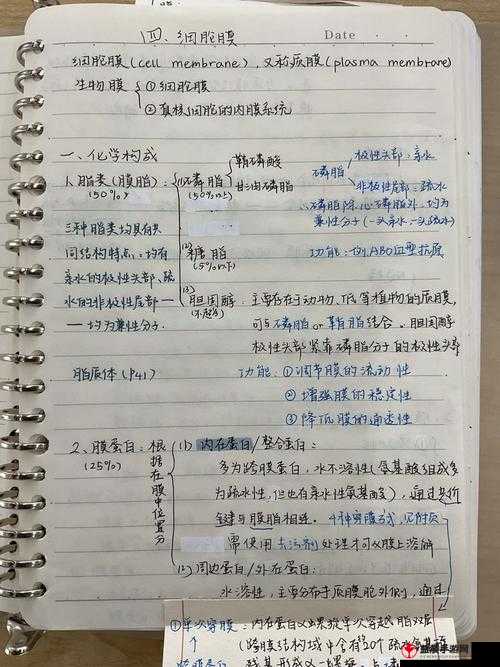 四、细胞膜 Date
细胞膜(cell membrane), 又称质膜(plasma membrane)
生物膜 ①细胞膜
②真核细胞的内膜系统
一、化学构成
1. 脂类(膜脂):
(50%)
(1)磷脂
(50%以上)
鞘磷脂
甘油磷脂
磷脂
极性头部:亲水
非极性尾部:疏水
磷脂除心磷脂外,均为
兼性分子(一头亲水,一头疏水)
三种脂类均具有共
同结构特点:均有
亲水的极性头部、疏
水的非极性尾部—
—均为兼性分子.
(2)
糖脂
(5%以下)
功能:如,ABO血型抗原
(3)
胆固醇:主要存在于动物、低等植物的质膜,
可与磷脂or鞘脂结合。胆固醇
极性头部紧靠磷脂分子的极性头部
脂质体(P41)
功能:①调节膜的流动性
②增强膜的稳定性
③降低膜的通透性
2、膜蛋白:根据在膜中位置分
(25%)
(1) 内在蛋白/整合蛋白:
多为跨膜蛋白,水不溶性(氨基酸组成多
为疏水性,但也有亲水性氨基酸),通过共价
键与膜脂相连。4种穿膜方式,见附页
需使用去污剂处理才可从膜上溶解
(2) 周边蛋白/外在蛋白:
水溶性,主要分布于质膜胞外侧,通过
①单次穿膜:内在蛋白又以单次穿越脂双层
(跨膜结构域中含有 个疏水氨基